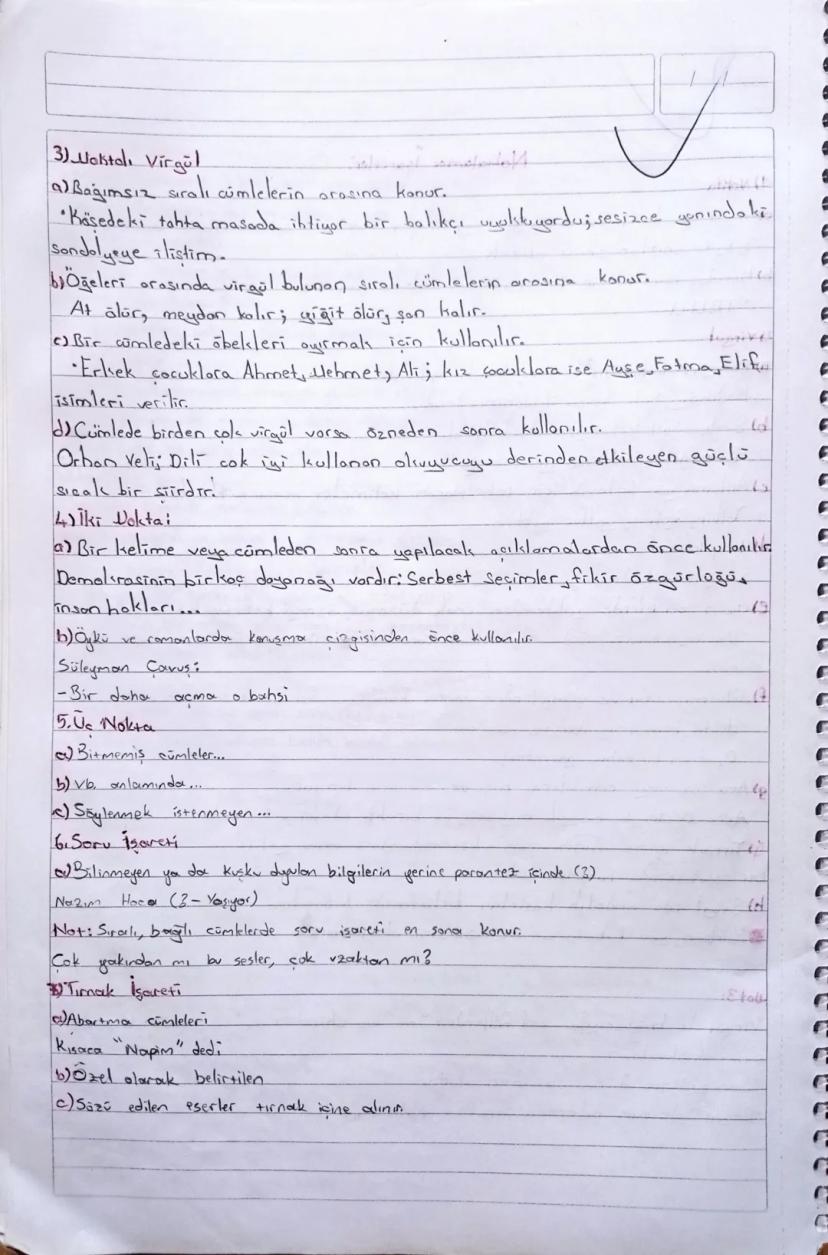 3) Noktalı Virgül
a) Bağımsız sıralı cümlelerin arasına konur.
• Köşedeki tahta masada ihtiyar bir balıkçı uyukluyordu; sesizce yanındaki
sandalyeye iliştim.
b) Öğeleri arasında virgül bulunan sıralı cümlelerin arasına konur.
At ölür, meydan kalır; yiğit ölür, şan kalır.
c) Bir cümledeki öbekleri ayırmak için kullanılır.
• Erkek çocuklara Ahmet, Mehmet, Ali; kız çocuklara ise Ayşe, Fatma, Elif
isimleri verilir.
d) Cümlede birden çok virgül varsa özneden sonra kullanılır.
Orhan Veli; Dili cok iyi kullanan okuyucuyu derinden etkileyen güçlü
sıcak bir şiirdir.
4) İki Nokta:
a) Bir kelime veya cümleden sonra yapılacak açıklamalardan önce kullanılır.
Demokrasinin birkaç dayanağı vardır: Serbest seçimler, fikir özgürlüğü,
insan hakları...
b) Öykü ve romanlarda konuşma çizgisinden önce kullanılır.
Süleyman Çavuş:
- Bir daha açma o bahsi
5. Üç Nokta
a) Bitmemiş cümleler...
b) vb. anlamında...
c) Söylenmek istenmeyen...
6. Soru İşareti
a) Bilinmeyen ya da kuşku duyulan bilgilerin yerine parantez içinde (?)
Nazım Hoca (? - Yaşıyor)
Not: Sıralı, bağlı cümlelerde soru işareti en sona konur.
Çok yakından mı bu sesler, çok uzaktan mı?
7) Tırnak İşareti
a) Abartma cümleleri
Kısaca "Napim" dedi
b) Özel olarak belirtilen
c) Sözü edilen eserler tırnak içine alınır.